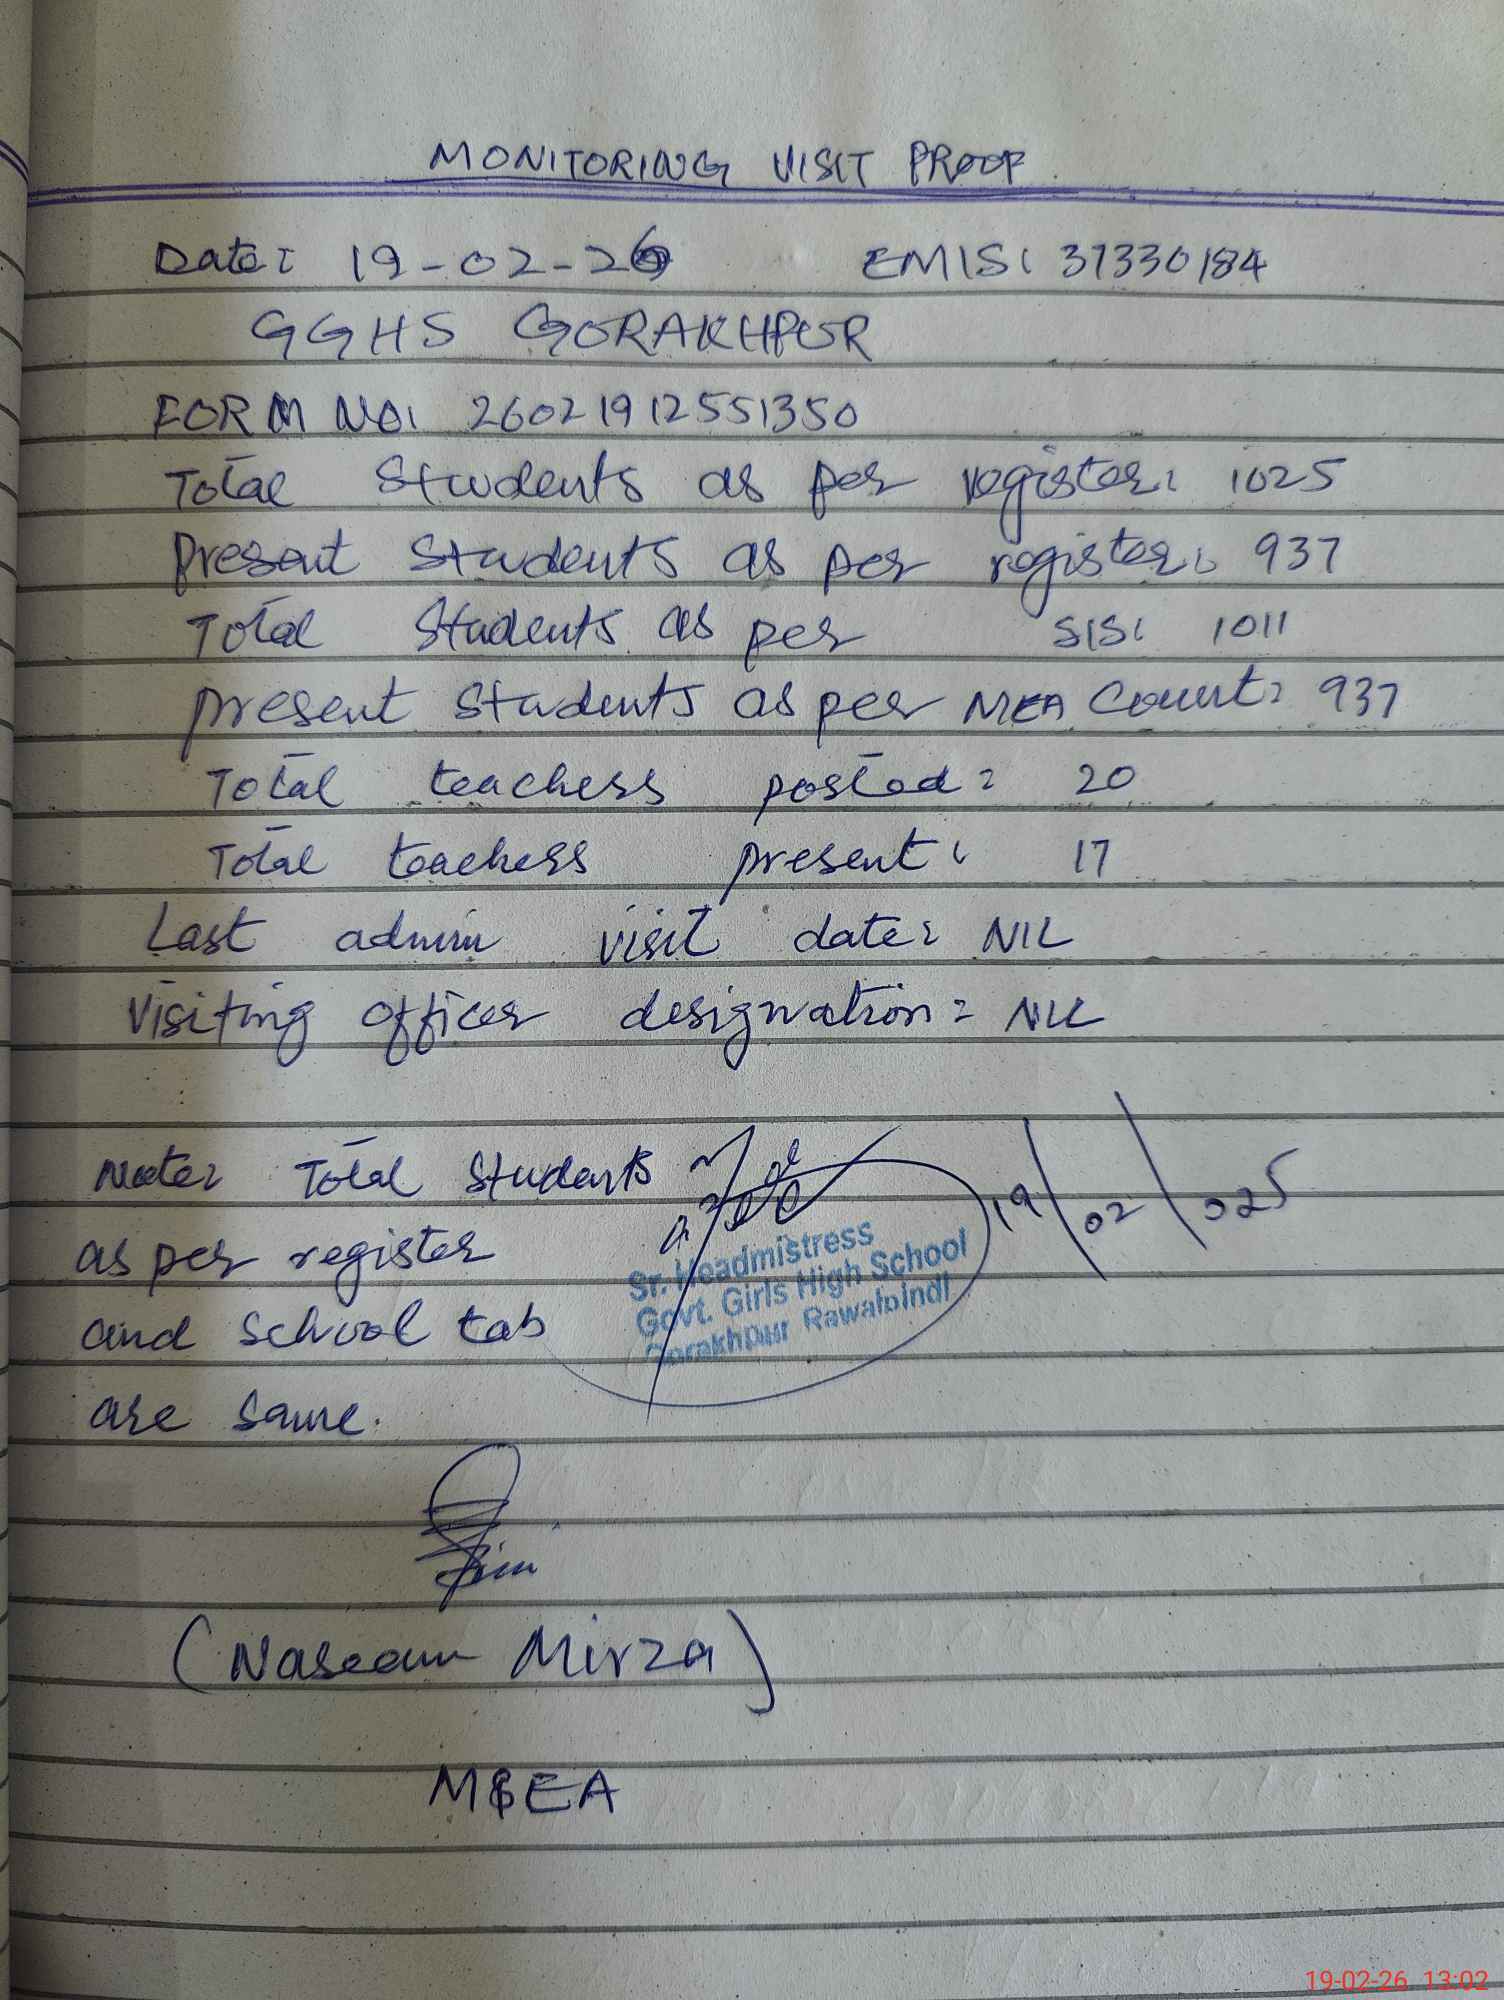 MONITORING VISIT PROOF
Date: 19-02-26 EMIS: 37330184
GGHS GORAKHPUR
FORM NO: 26021912551350
Total Students as per register: 1025
Present Students as per register: 937
Total Students as per SIS: 1011
present Students as per MEA Count: 937
Total teachers posted: 20
Total teachers present: 17
Last admin visit date: NIL
Visiting officer designation: NIL
Note: Total Students
as per register
and School tab
are same.
19/02/025
Sr. Headmistress
Govt. Girls High School
Gorakhpur Rawalpindi
(Naseem Mirza)
MEA
19-02-26 13:02